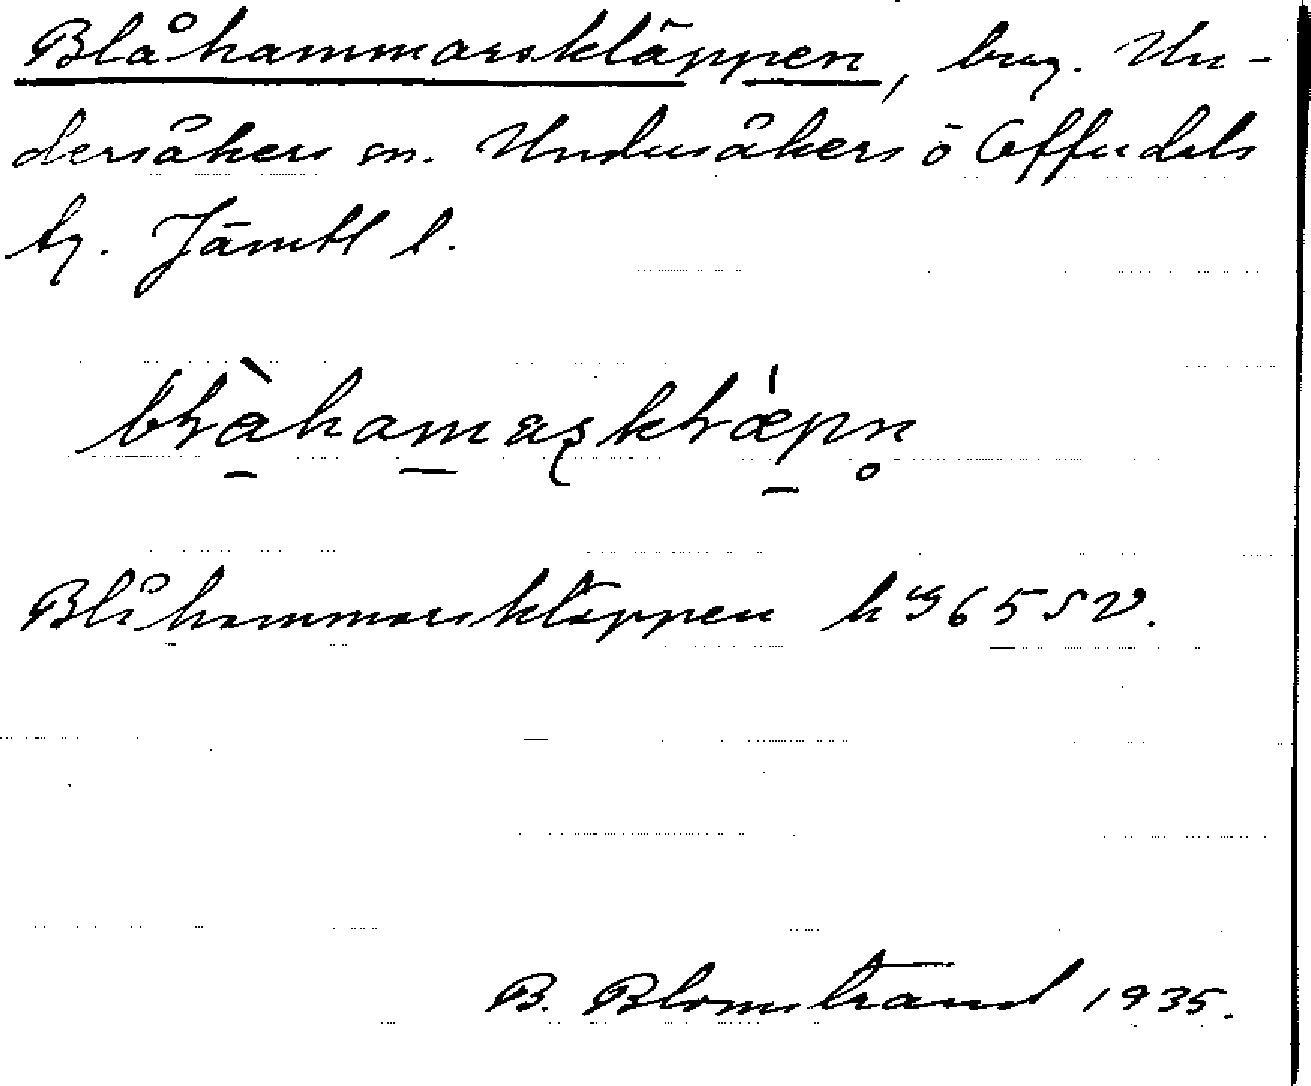 Blåhammarskläppen, brg. Un-
dersåkers sn. Undersåkers o Offerdals
tg. Jämtl l.
Blåhammarskläppen h 965 SV.
B. Blomstrand 1935.